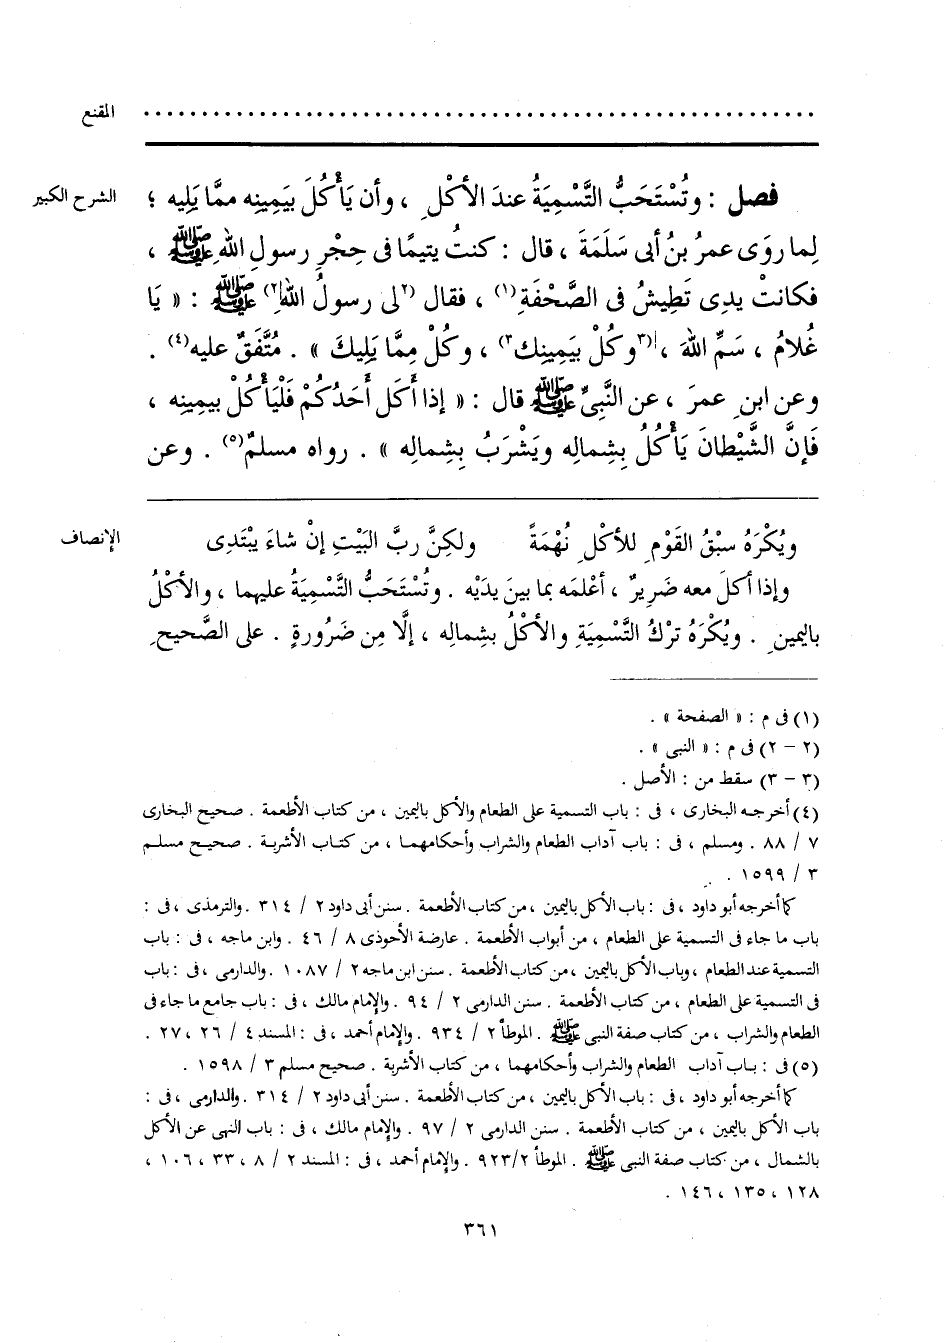 المقنع ........................................................
الشرح الكبير
فصل : وتُسْتَحَبُّ التَّسْمِيَةُ عندَ الأكْلِ ، وأن يَأْكُلَ بيَمِينِه ممَّا يَلِيه ؛
لِما روَى عمرُ بنُ أبى سَلَمَةَ ، قال : كنتُ يتيمًا فى حِجْرِ رسولِ اللهِ ﷺ ،
فكانتْ يدِى تَطِيشُ فى الصَّحْفَةِ(١) ، فقال (٢لى رسولُ اللهِ٢) ﷺ : « يَا
غُلَامُ ، سَمِّ اللهَ ، (٣وكُلْ بِيَمِينِك٣) ، وكُلْ مِمَّا يَلِيكَ » . مُتَّفَقٌ عليه(٤) .
وعن ابنِ عمرَ ، عن النَّبِىِّ ﷺ قال : « إذا أَكَل أَحَدُكُمْ فَلْيَأْكُلْ بيمينِه ،
فَإنَّ الشَّيْطانَ يَأْكُلُ بِشِمالِه ويَشْرَبُ بِشِمالِه » . رواه مسلمٌ(٥) . وعن
الإنصاف
ويُكْرَهُ سبْقُ القَوْمِ للأكْلِ نُهْمَةً ولكِنَّ ربَّ البَيْتِ إنْ شاءَ يبْتَدِى
وإذا أكلَ معه ضَرِيرٌ ، أعْلَمه بما بينَ يدَيْه . وتُسْتَحَبُّ التَّسْمِيَةُ عليهما ، والأكْلُ
باليمينِ . ويُكْرَهُ ترْكُ التَّسْمِيَةِ والأكْلُ بشماله ، إلَّا مِن ضَرُورةٍ . على الصَّحيحِ
(١) فى م : « الصفحة » .
(٢ - ٢) فى م : « النبى » .
(٣ - ٣) سقط من : الأصل .
(٤) أخرجه البخارى ، فى : باب التسمية على الطعام والأكل باليمين ، من كتاب الأطعمة . صحيح البخارى
٧ / ٨٨ . ومسلم ، فى : باب آداب الطعام والشراب وأحكامهما ، من كتاب الأشربة . صحيح مسلم
٣ / ١٥٩٩ .
كما أخرجه أبو داود ، فى : باب الأكل باليمين ، من كتاب الأطعمة . سنن أبى داود ٢ / ٣١٤ . والترمذى ، فى :
باب ما جاء فى التسمية على الطعام ، من أبواب الأطعمة . عارضة الأحوذى ٨ / ٤٦ . وابن ماجه ، فى : باب
التسمية عند الطعام ، وباب الأكل باليمين ، من كتاب الأطعمة . سنن ابن ماجه ٢ / ١٠٨٧ . والدارمى ، فى : باب
فى التسمية على الطعام ، من كتاب الأطعمة . سنن الدارمى ٢ / ٩٤ . والإمام مالك ، فى : باب جامع ما جاء فى
الطعام والشراب ، من كتاب صفة النبى ﷺ . الموطأ ٢ / ٩٣٤ . والإمام أحمد ، فى : المسند ٤ / ٢٦ ، ٢٧ .
(٥) فى : باب آداب الطعام والشراب وأحكامهما ، من كتاب الأشربة . صحيح مسلم ٣ / ١٥٩٨ .
كما أخرجه أبو داود ، فى : باب الأكل باليمين ، من كتاب الأطعمة . سنن أبى داود ٢ / ٣١٤ . والدارمى ، فى :
باب الأكل باليمين ، من كتاب الأطعمة . سنن الدارمى ٢ / ٩٧ . والإمام مالك ، فى : باب النهى عن الأكل
بالشمال ، من كتاب صفة النبى ﷺ . الموطأ ٢/ ٩٢٣ . والإمام أحمد ، فى : المسند ٢ / ٨ ، ٣٣ ، ١٠٦ ،
١٢٨ ، ١٣٥ ، ١٤٦ .
٣٦١